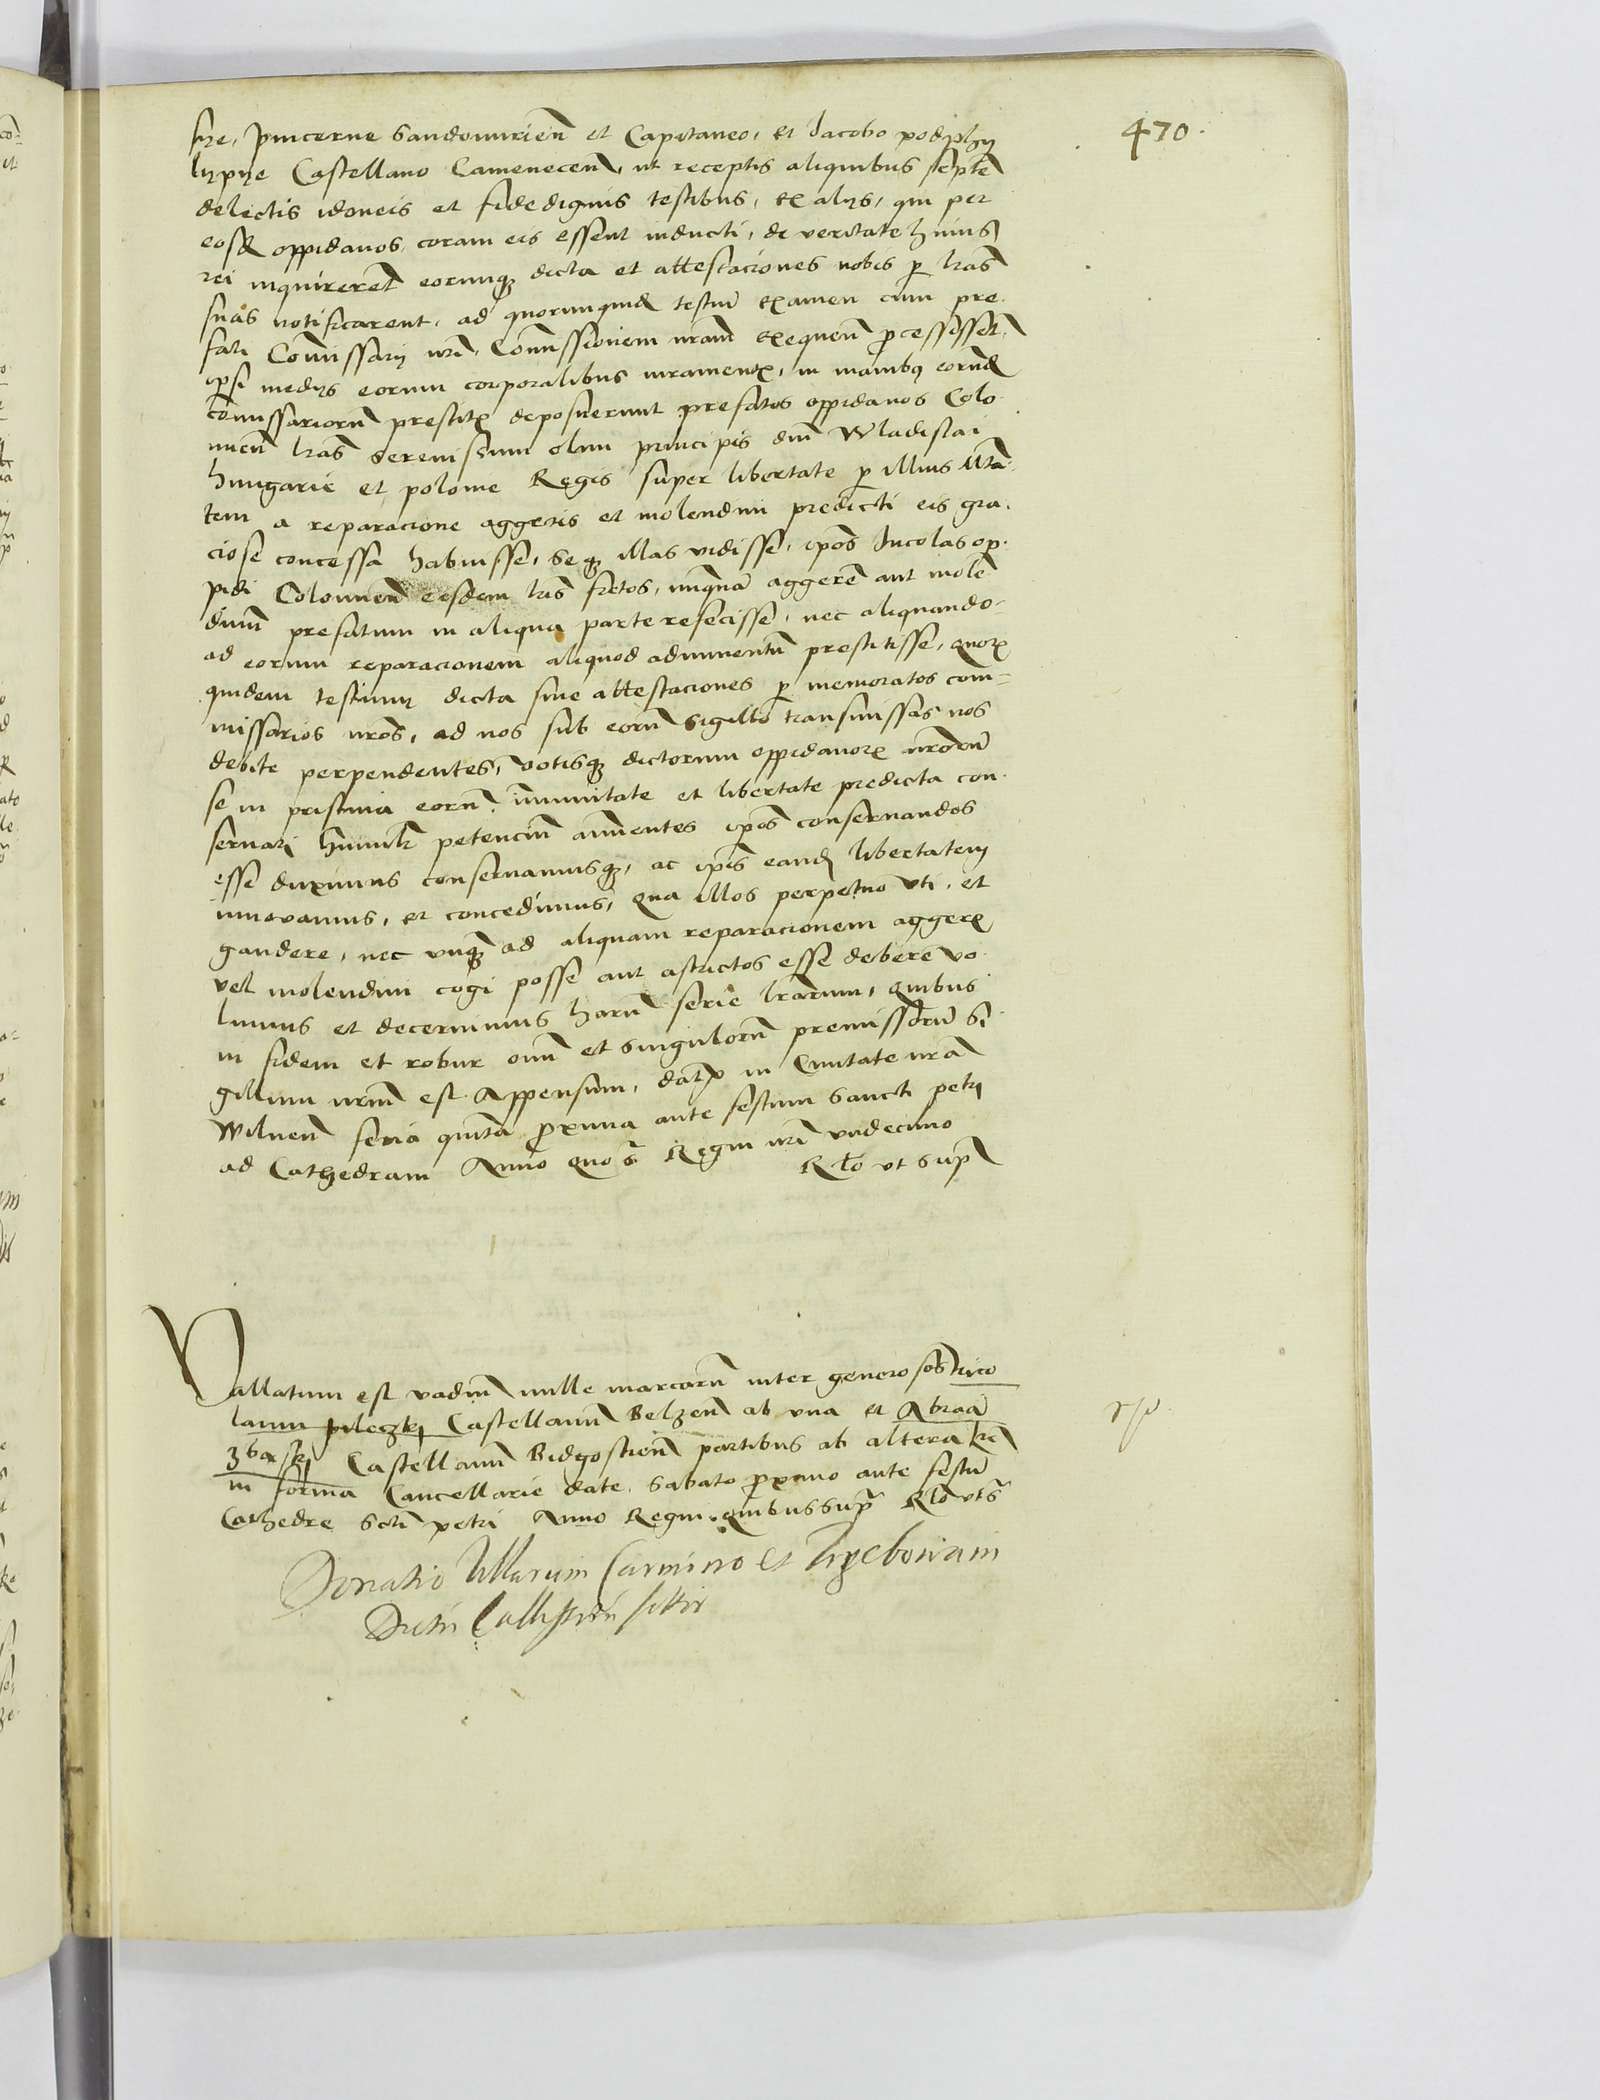 470.
sze, pincerne Sandomirien et Capitaneo, et Jacobo
Castellano Camenecen, ut receptis aliquibus septem
delectis idoneis et fidedignis testibus, ex alijs, qui per
eosd oppidanos, coram eis essent inducti, de veritate huius
rei inquirerent eorumq dicta et attestaciones nobis p lras
suas notificarent, ad quorumquid testiu examen cum pre
fati Comissarij nri, Comissionem nram exequen processissent
ipsi medijs eorum corporalibus iuramentis, in manibus eorund
comissariorum prestitis deposuerunt prefatos oppidanos Colo
micen lras serenissimi olim principis dni Wladislai
hungarie et polonie Regis super libertate p illius Mta
tem a reparacione aggeris et molendini predicti eis gra
ciose concessa habuisse, seq illas vidisse, ipos Incolas op
pidi eisdem lris fretos, nunqua aggere aut molen
dinum prefatum in aliqua parte refecisse, nec aliquando
ad eorum reparacionem aliquod adiumentu prestitisse, quorum
quidem testium dicta sive attestaciones p memoratos com
missarios nros, ad nos sub eorum sigillo transmissas nos
debite perpendentes, votisq dictorum oppidanorum nrorum
se in pristina eorum immunitate et libertate predicta con
servari humilr petencium annuentes ipos conservandos
esse duximus conservamusq, ac ipis eand libertatem
innovamus, et concedimus, qua illos perpetuo uti, et
gaudere, nec unq ad aliquam reparacionem aggeris
vel molendini cogi posse aut astrictos esse debere vo
lumus et decernimus harum serie lrarum, quibus
in fidem et robur oium et singulorum premissorum Si
gillum nrum est Appensum, dat in Civitate nra
Wilnen feria quinta proxima ante festum Sancti petri
ad Cathedram Anno quo s Regni nri undecimo
Rlo ut supra
Vallatum est vadium mille marcarum inter generosos Nico
laum pileczki Castellanum Belzen ab una et Abraam
Castellanum Bidgostien partibus ab altera
in forma Cancellarie date, Sabato proximo ante festum
Cathedre Scti petri Anno Regni quibus supra Rlo uts
Donatio Villarum Carnino et